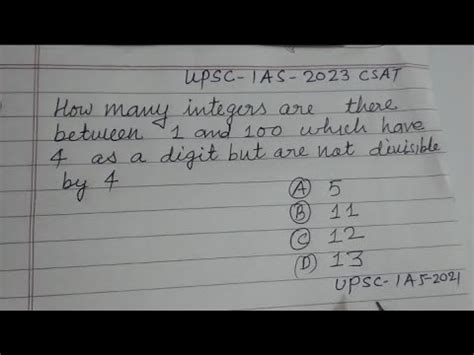 UPSC-IAS-2023 CSAT
How many integers are there
between 1 and 100 which have
4 as a digit but are not divisible
by 4
(A) 5
(B) 11
(C) 12
(D) 13
UPSC-IAS-2021